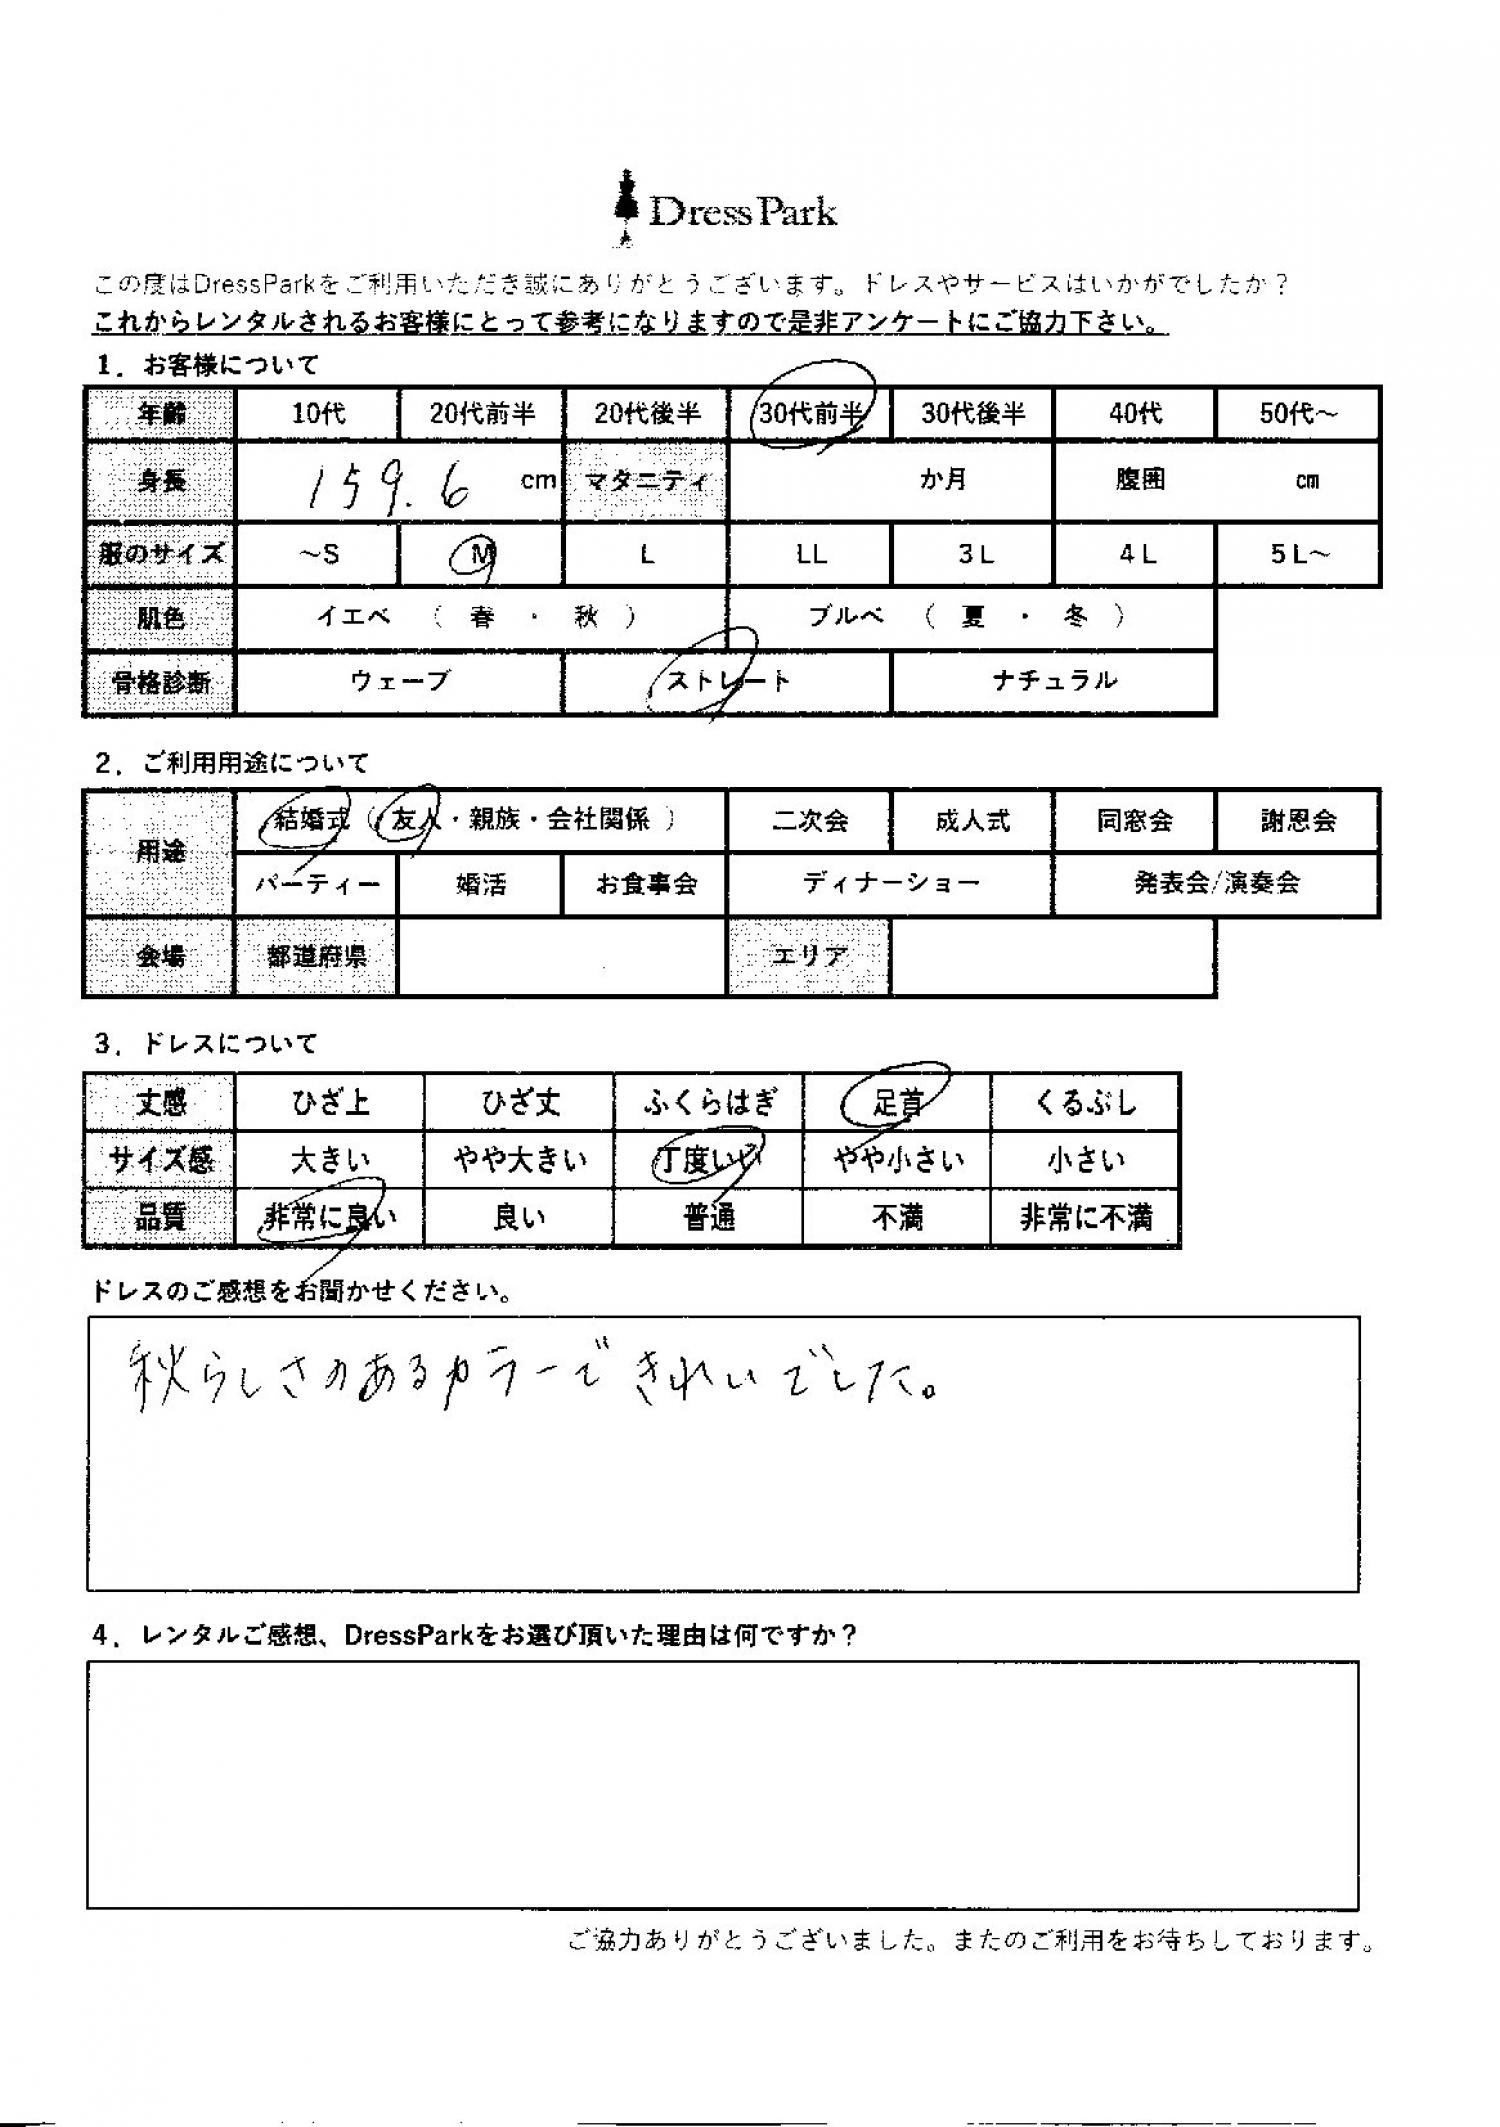 Dress Park
この度はDressParkをご利用いただき誠にありがとうございます。ドレスやサービスはいかがでしたか？
これからレンタルされるお客様にとって参考になりますので是非アンケートにご協力下さい。
1．お客様について
年齢 10代 20代前半 20代後半 30代前半 30代後半 40代 50代～
身長 159.6 cm マタニティ か月 腹囲 cm
服のサイズ ～S M L LL 3L 4L 5L～
肌色 イエベ （ 春 ・ 秋 ） ブルベ （ 夏 ・ 冬 ）
骨格診断 ウェーブ ストレート ナチュラル
2．ご利用用途について
用途 結婚式（ 友人・親族・会社関係 ） 二次会 成人式 同窓会 謝恩会
パーティー 婚活 お食事会 ディナーショー 発表会/演奏会
会場 都道府県 エリア
3．ドレスについて
丈感 ひざ上 ひざ丈 ふくらはぎ 足首 くるぶし
サイズ感 大きい やや大きい 丁度いい やや小さい 小さい
品質 非常に良い 良い 普通 不満 非常に不満
ドレスのご感想をお聞かせください。
秋らしさのあるカラーできれいでした。
4．レンタルご感想、DressParkをお選び頂いた理由は何ですか？
ご協力ありがとうございました。またのご利用をお待ちしております。